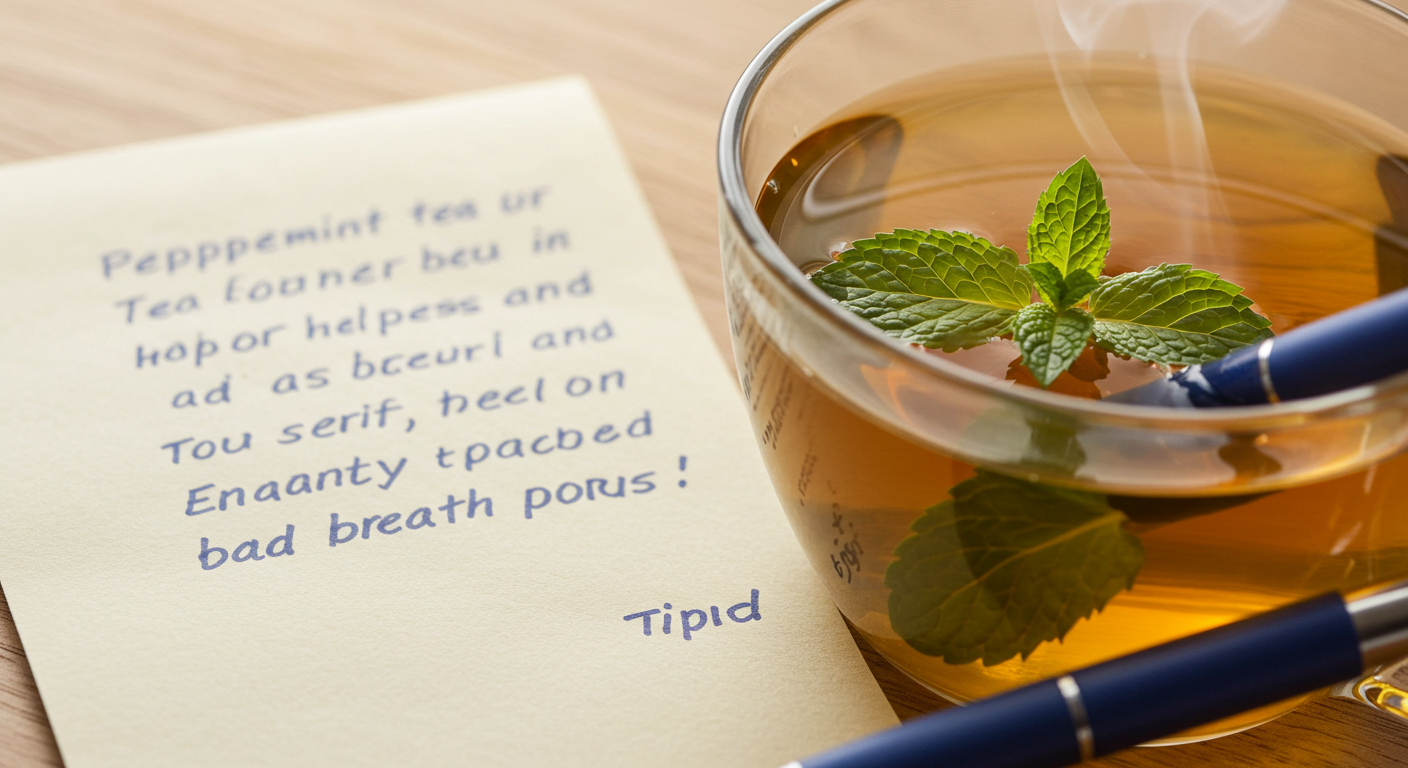 Pepppemint tea ur
Tea founer beu in
hop or helpess and
ad as bceurl and
Tou serif, heel on
Enaanty tpacbed
bad breath porus!
Tipid